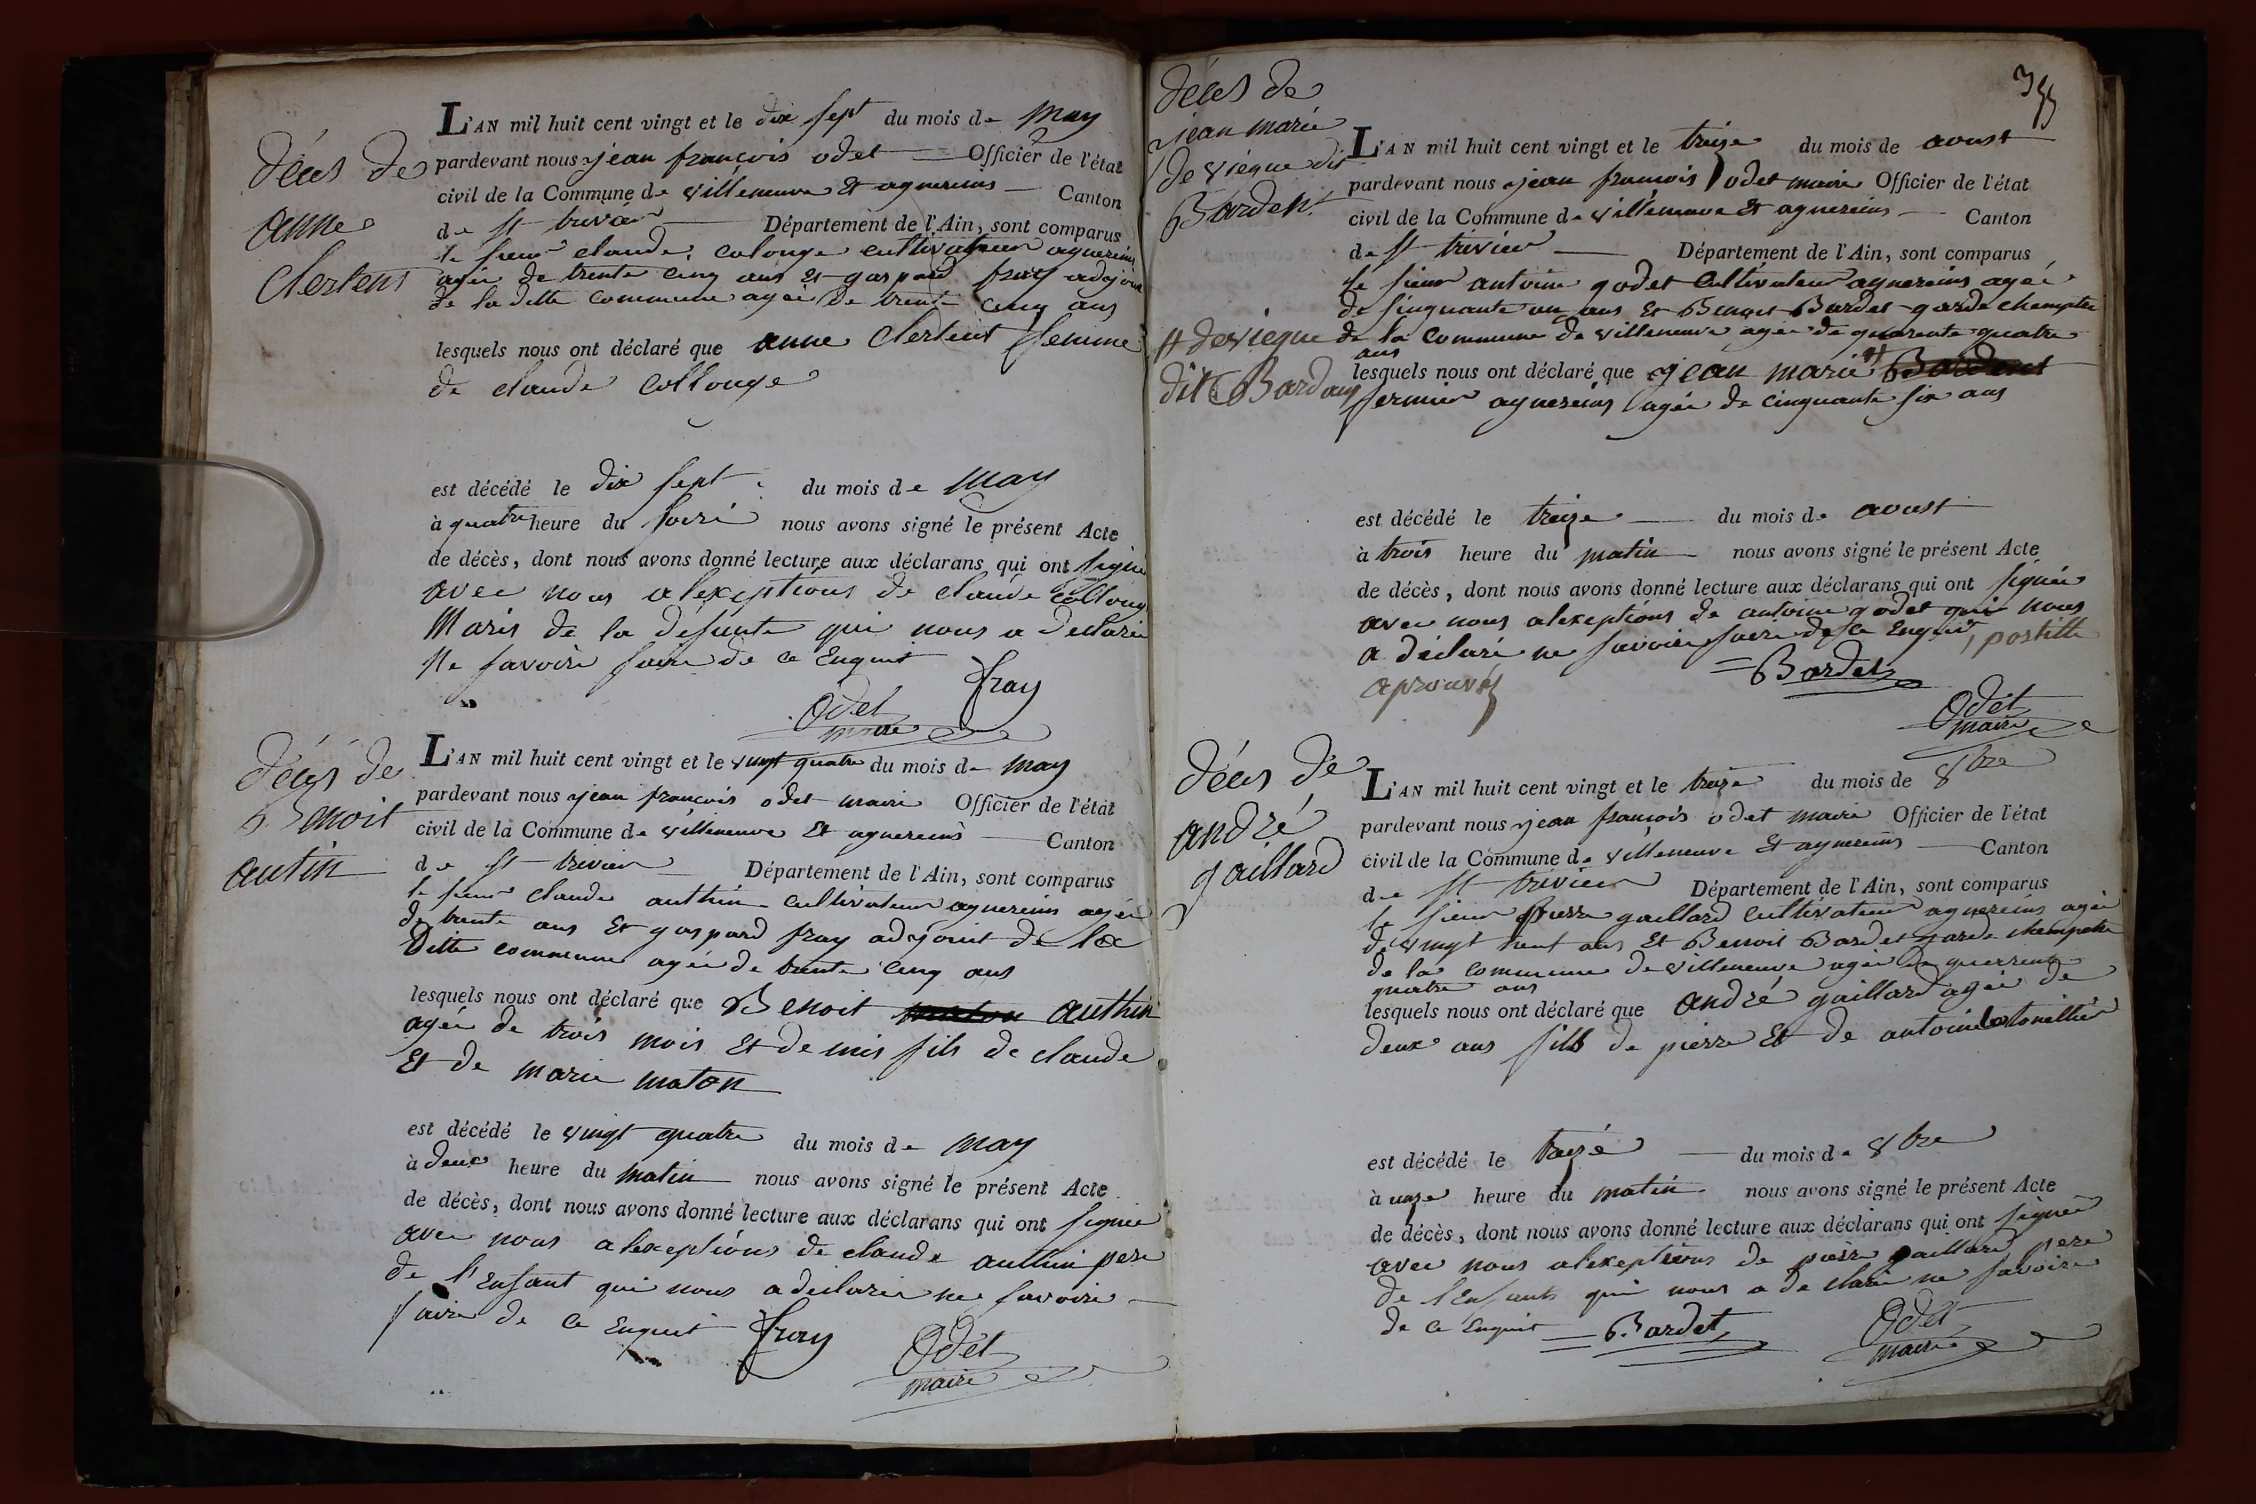 décès de
anne
Clertent
L'AN mil huit cent vingt et le dix sept du mois de may
pardevant nous jean françois odet — Officier de l'état
civil de la Commune de villeneuve Et agnereins — Canton
de St trivier — Département de l'Ain, sont comparus
le sieur claude colonge cultivateur agnereins
agée de trente cinq ans Et gaspard fray adejoint
de la ditte commune agée de trente cinq ans
lesquels nous ont déclaré que anne Clertent femme
de claude Collonge
est décédé le dix sept du mois de may
à quatre heure du soiré nous avons signé le présent Acte
de décès, dont nous avons donné lecture aux déclarans qui ont signé
avec nous alexeptions de claude collonge
Maris de la défunte qui nous a declarée
Ne savoire faire de ce Enquit
fray
Odet
maire
décés de
Benoit
autin
L'AN mil huit cent vingt et le vingt quatre du mois de may
pardevant nous jean françois odet maire Officier de l'état
civil de la Commune de villeneuve Et agnereins — Canton
de St trivier — Département de l'Ain, sont comparus
le sieur claude authin cultivateur agnereins agée
de trente ans Et gaspard fray adejoint de la
Ditte commune agée de trente cinq ans
lesquels nous ont déclaré que Benoit authin
agée de trois mois Et demis fils de claude
Et de marie maton
est décédé le vingt quatre du mois de may
à deux heure du matin — nous avons signé le présent Acte
de décès, dont nous avons donné lecture aux déclarans qui ont signée
avec nous alexeptions de claude authin pere
de l'Enfant qui nous a declarée ne savoire —
faire de ce Enquit
fray
Odet
maire
355
décès de
jean marie
de viegue dit
Bardent
L'AN mil huit cent vingt et le treize du mois de aoust
pardevant nous jean françois odet maire Officier de l'état
civil de la Commune de villeneuve Et agnereins — Canton
de St trivier — Département de l'Ain, sont comparus
le sieur antoine godet Cultivateur agnereins agée
de sinquante un ans Et Benoit Bardet garde champetre
de la commune de villeneuve agée de quarente quatre
ans
lesquels nous ont déclaré que jean marie # Bardent
# deviegue
dit Bardent
fermier agnereins agée de cinquante six ans
est décédé le treize — du mois de aoust
à trois heure du matin — nous avons signé le présent Acte
de décès, dont nous avons donné lecture aux déclarans qui ont signée
avec nous alexeptions de antoine godet qui nous
a déclaré ne savoire faire de ce Enquit, postille
aprouvé
Bardet
Odet
maire
décès de
andré
gaillard
L'AN mil huit cent vingt et le treize du mois de 8bre
pardevant nous jean françois odet maire Officier de l'état
civil de la Commune de villeneuve Et agnereins — Canton
de St trivier Département de l'Ain, sont comparus
le sieur pierre gaillard cultivateur agnereins agée
de vingt neuf ans Et Benoit Bardet garde champetre
de la commune de villeneuve agée de querrente
quatre ans
lesquels nous ont déclaré que andré gaillard agée de
deux ans fils de pierre Et de antoinete tonellier
est décédé le treizé — du mois de 8bre
à unze heure du matin — nous avons signé le présent Acte
de décès, dont nous avons donné lecture aux déclarans qui ont signée
avec nous alexeptions de pierre gaillard pere
de l'Enfants qui nous a declaré ne savoire
de ce Enquit
Bardet
Odet
maire